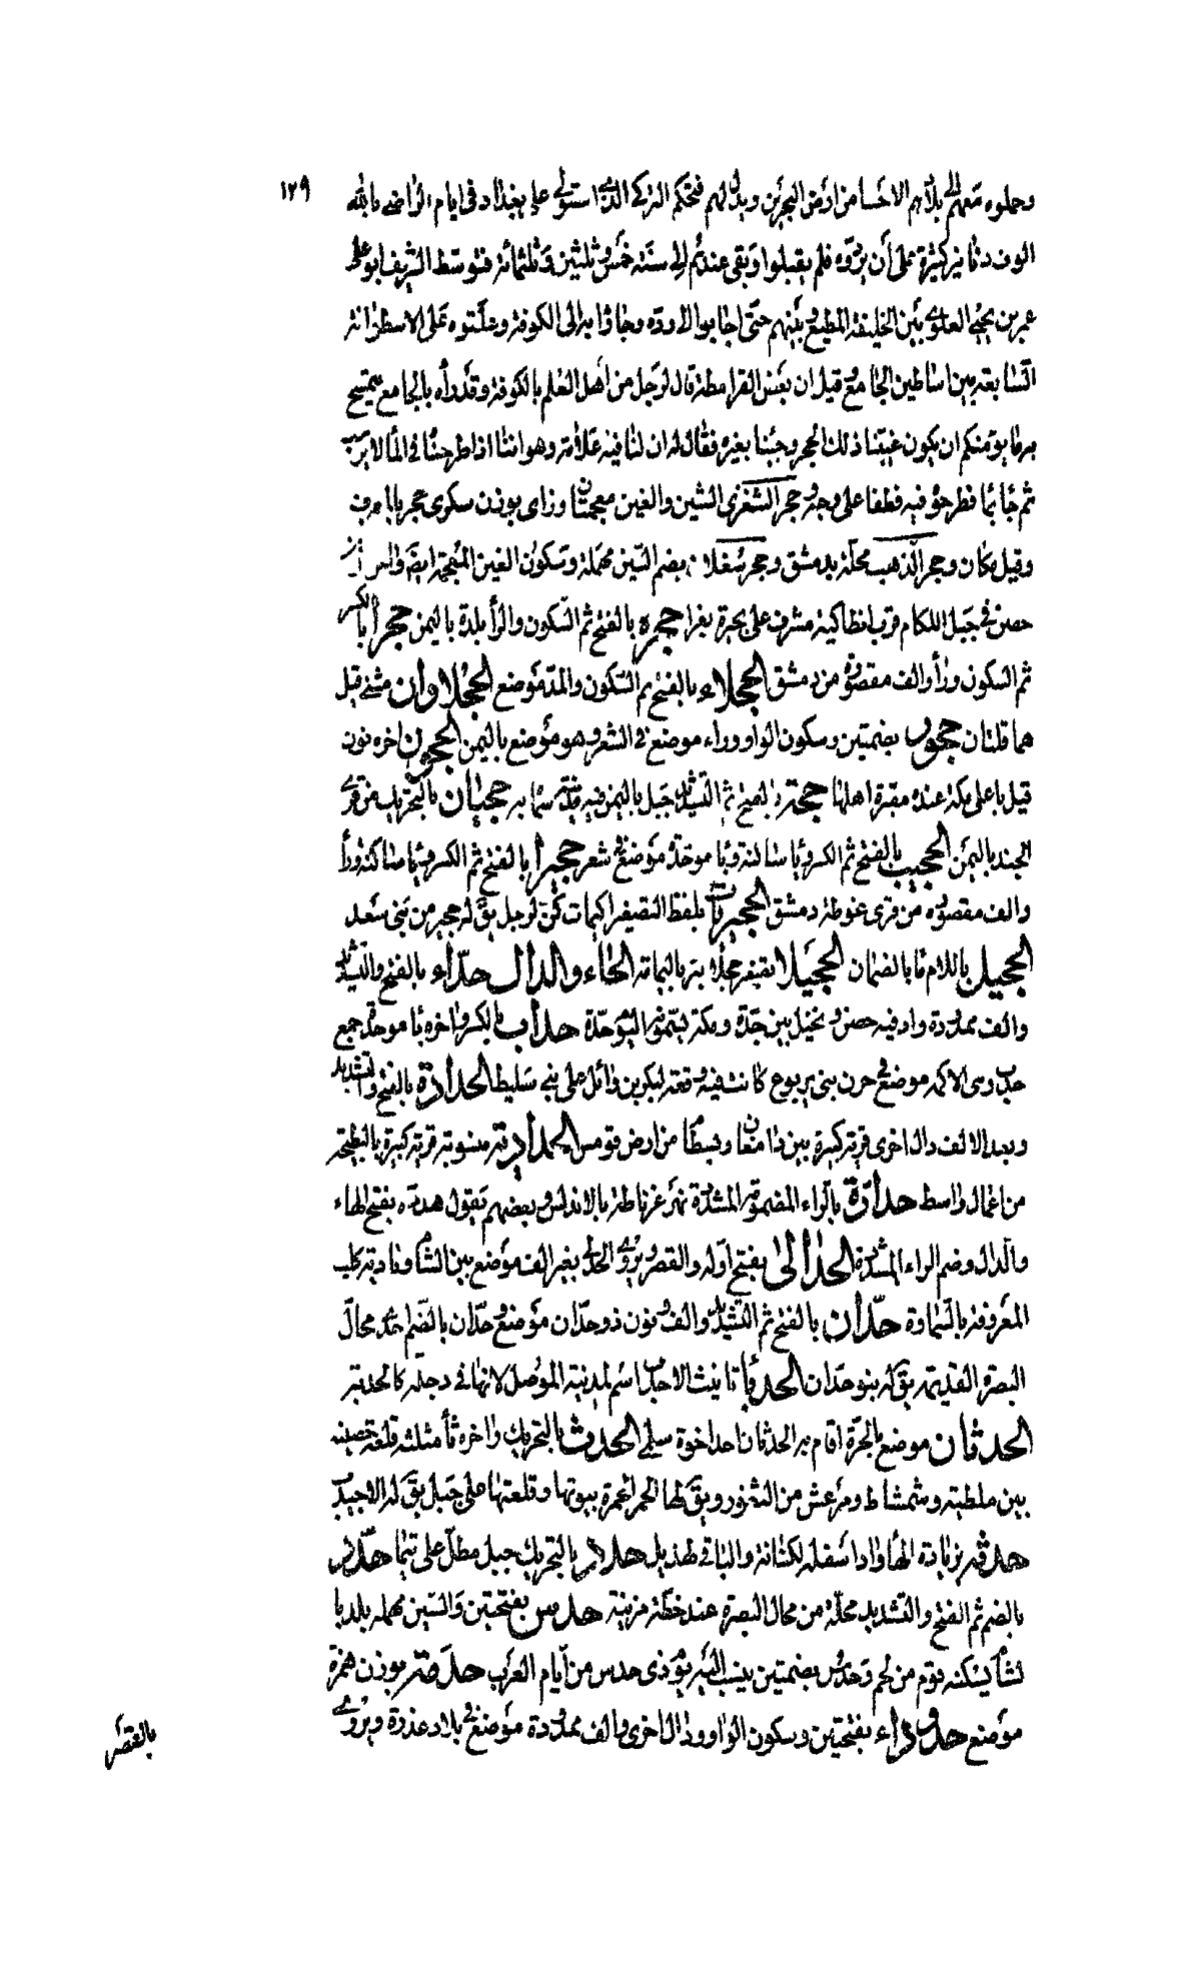 ١٢٩
وحملوه معهم الى بلادهم الاحسا من ارض البحرين وبذل لهم بجكم التركي الذي استولى على بغداد في ايام الراضي بالله
الوف دنانير كثيرة على أن يردوه فلم يقبلوا وبقى عندهم الى سنة خمس وثلثين وثلثمائة فتوسط الشريف ابو على
عمر بن يحيى العلوى بين الخليفة المطيع وبينهم حتى اجابوا الى رده وجاؤا به الى الكوفة وعلقوه على الاسطوانة
السابعة بين اساطين الجامع وقيل ان بعض القرامطة قال لرجل من اهل العلم بالكوفة وقد رأه بالجامع يتمسح
به ما يؤمنكم ان يكون غيبنا ذلك الحجر وجئنا بغيره فقال له ان لنا فيه علامة وهو اننا اذا طرحناه في الماء لا يرسب
ثم جائ بما فطرحوه فيه فطفا على وجهه حجر الشغزى الشين والغين معجمتان وزاى بوزن سكرى حجر بالمعرف
وقيل مكان وحجر الذهب محلة بدمشق وحجر شغلان بضم الشين مهملة وسكون الغين المعجمة ايضا
حصن في جبل اللكام قرب انطاكية مشرف على بحرة بغرا حجرة بالفتح ثم السكون والرأ بلدة باليمن حجرا بالكسر
ثم السكون ورأ والف مقصورة من دمشق الحجلاء بالفتح ثم السكون والمد موضع الحجلاوان مثنى قيل
هما قلتان حجور بضمتين وسكون الواو وراء موضع في الشعر وهو موضع باليمن الحجون اخره نون
قيل باعلى مكة عنده مقبرة اهلها حجة بالفتح ثم التشديد جبل باليمن فيه مدينة سمى به حجيان بالتحريك من قرى
الجند باليمن الحجيب بالفتح ثم الكسر ويا ساكنة وبا موحدة موضع في شعر حجيرا بالفتح ثم الكسر ويا ساكنة ورأ
والف مقصورة من قرى غوطة دمشق الحجيرات بلفظ التصغير اكيمات كن لرجل يق له حجير من بنى سعد
الحجيل باللام ما بالصمان الحجيلا تصغير حجلاء بئر باليمامة الحاء والدال حداء بالفتح والتشديد
والف ممدودة واد فيه حصن ونخيل بين جدة ومكة يسمونه اليوم حدة حداب بالكسر واخره با موحدة جمع
حدب وهى الاكمة موضع في حزن بنى يربوع كانت فيه وقعة لبكر بن وائل على بنى سليط الحدادة بالفتح والتشديد
وبعد الالف دال اخرى قرية كبيرة بين دامغان وبسطام من ارض قومس الحدادية منسوبة قرية كبيرة بالبطيحة
من اعمال واسط حدارة بالراء المضمومة المشددة نهر غرناطة بالاندلس وبعضهم يقول هداره بفتح الهاء
والدال وضم الراء المشددة الحدالى بفتح اوله والقصر ويروى الحدال بغير الف موضع بين الشام وبادية كلب
المعروفة بالسماوة حدان بالفتح ثم التشديد والف ونون ذو حدان موضع وحدان بالضم احد محال
البصرة القديمة يق له بنو حدان الحدباء تانيث الاحدب اسم لمدينة الموصل لانها في دجلة كالحدبة
الحدثان موضع بالحرة اقام به الحدثان احد اخوة سلمى الحدث بالتحريك واخره ثأ مثلثة قلعة حصينة
بين ملطية وشمشاط ومرعش من الثغور ويق لها الحمرا لحمرة بيوتها وقلعتها على جبل يق له الاحيدب
حدثه بزيادة الها واد اسفله لكنانة والباقى لهذيل حدد بالتحريك جبل مطل على تيما حدس
بالضم ثم الفتح والتشديد محلة من محال البصرة عند خطة مزينة حدس بفتحتين والسين مهملة بلد با
لشام يسكنه قوم من لحم وحدس بضمتين ينسب اليه يوم ذى حدس من ايام العرب حدمة بوزن همزة
موضع حدوداء بفتحتين وسكون الواو ودال اخرى والف ممدودة موضع في بلاد عذرة ويروى
بالقصر